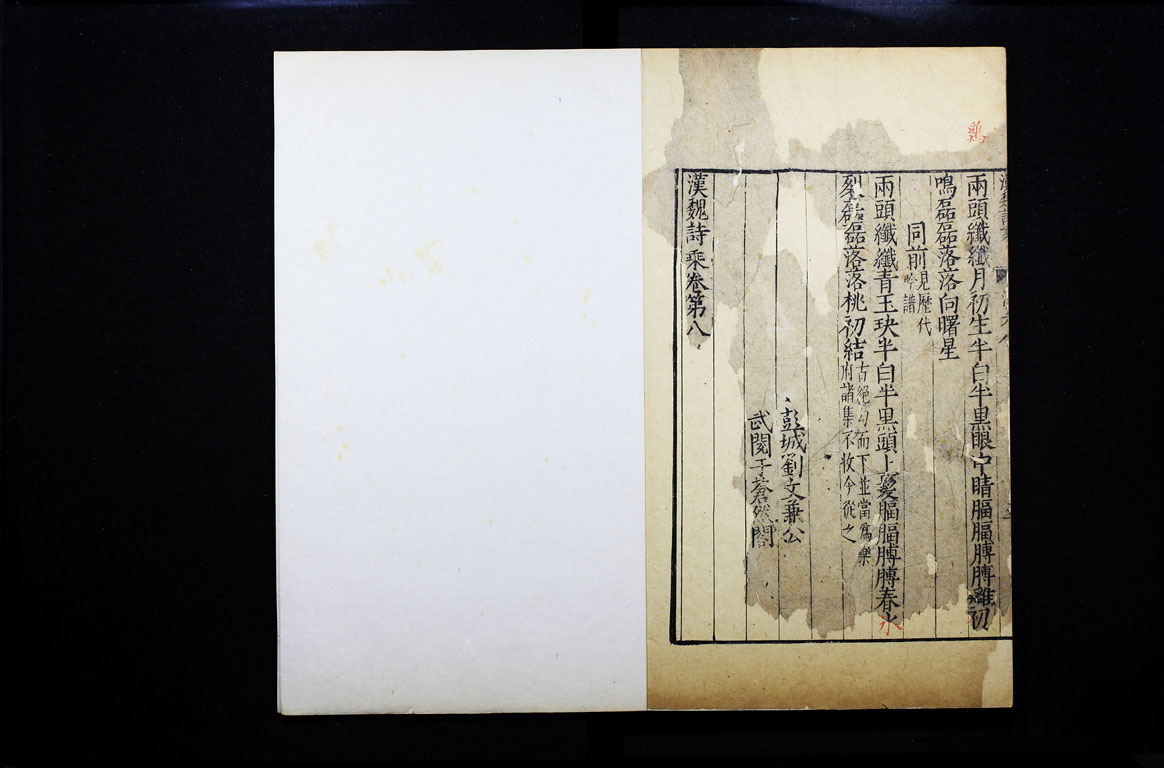 鷄
兩頭纖纖月初生半白半黒眼中睛腷腷膊膊雞初
鳴磊磊落落向曙星
同前見歷代
吟譜
兩頭纖纖青玉玦半白半黒頭上髮腷腷膊膊春氷
裂磊磊落落桃初結古絕句而下並當爲樂
府諸集不收今從之
彭城劉文兼公
武閱于蒼然閣
漢魏詩乘卷第八